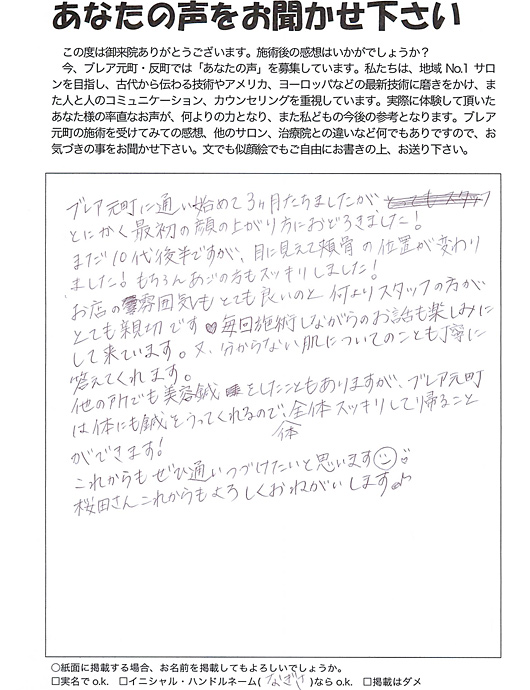 あなたの声をお聞かせ下さい
この度は御来院ありがとうございます。施術後の感想はいかがでしょうか?
今、ブレア元町・反町では「あなたの声」を募集しています。私たちは、地域 No.1 サロ
ンを目指し、古代から伝わる技術やアメリカ、ヨーロッパなどの最新技術に磨きをかけ、ま
た人と人のコミュニケーション、カウンセリングを重視しています。実際に体験して頂いた
あなた様の率直なお声が、何よりの力となり、また私どもの今後の参考となります。ブレア
元町の施術を受けてみての感想、他のサロン、治療院との違いなど何でもありですので、お
気づきの事をお聞かせ下さい。文でも似顔絵でもご自由にお書きの上、お送り下さい。
ブレア元町に通い始めて3ヶ月たちましたが とってもスタッフ
とにかく最初の顔の上がり方におどろきました!
まだ10代後半ですが、目に見えて頬骨の位置が変わり
ました!もちろんあごの方もスッキリしました!
お店の雰囲気もとても良いのと 何よりスタッフの方が
とても親切です♥毎回施術しながらのお話も楽しみに
して来ています。又、分からない肌についてのことも丁寧に
答えてくれます。
他の所でも美容鍼をしたこともありますが、ブレア元町
は体にも鍼をうってくれるので、全体スッキリして帰ること
体
ができます!
これからもぜひ通いつづけたいと思います☺
桜田さんこれからもよろしくおねがいします♪
○紙面に掲載する場合、お名前を掲載してもよろしいでしょうか。
□実名でo.k. □イニシャル・ハンドルネーム(なぎさ)なら o.k. □掲載はダメ